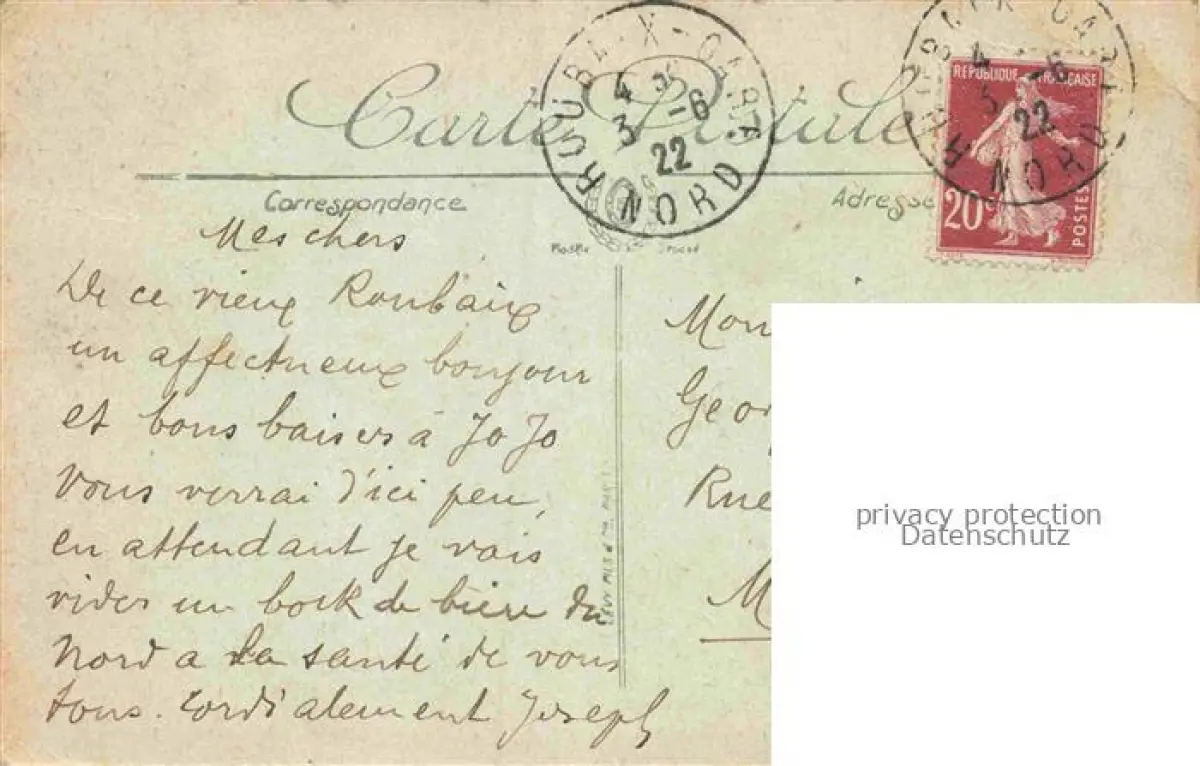 Carte Postale
ROUBAIX-GARE
4 35
3 -6
22
NORD
ROUBAIX-GARE
4
3 -6
22
NORD
REPUBLIQUE FRANCAISE
20c
POSTES
Correspondance
Adresse
Mes chers
De ce vieux Roubaix
un affectueux bonjour
et bons baisers à JoJo
vous verrai d'ici peu,
en attendant je vais
vider un bock de bière du
Nord a la santé de vous
tous. Cordialement Joseph
Mon
Geor
Rue
M
privacy protection
Datenschutz